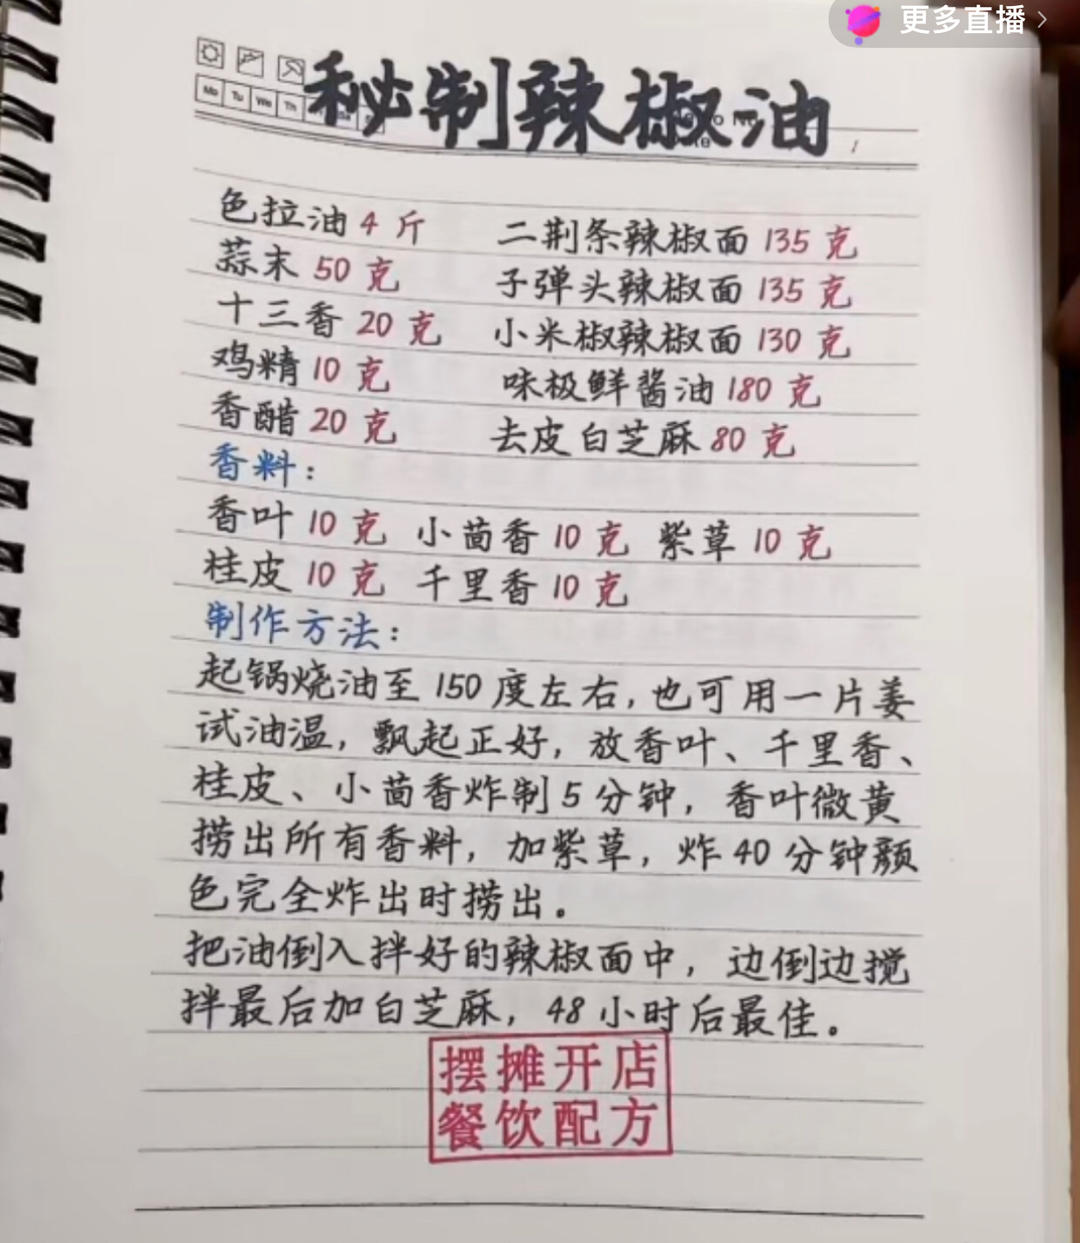 更多直播
秘制辣椒油
Mo Tu We Th
色拉油 4 斤 二荆条辣椒面 135 克
蒜末 50 克 子弹头辣椒面 135 克
十三香 20 克 小米椒辣椒面 130 克
鸡精 10 克 味极鲜酱油 180 克
香醋 20 克 去皮白芝麻 80 克
香料：
香叶 10 克 小茴香 10 克 紫草 10 克
桂皮 10 克 千里香 10 克
制作方法：
起锅烧油至 150 度左右，也可用一片姜
试油温，飘起正好，放香叶、千里香、
桂皮、小茴香炸制 5 分钟，香叶微黄
捞出所有香料，加紫草，炸 40 分钟颜
色完全炸出时捞出。
把油倒入拌好的辣椒面中，边倒边搅
拌最后加白芝麻，48 小时后最佳。
摆摊开店
餐饮配方